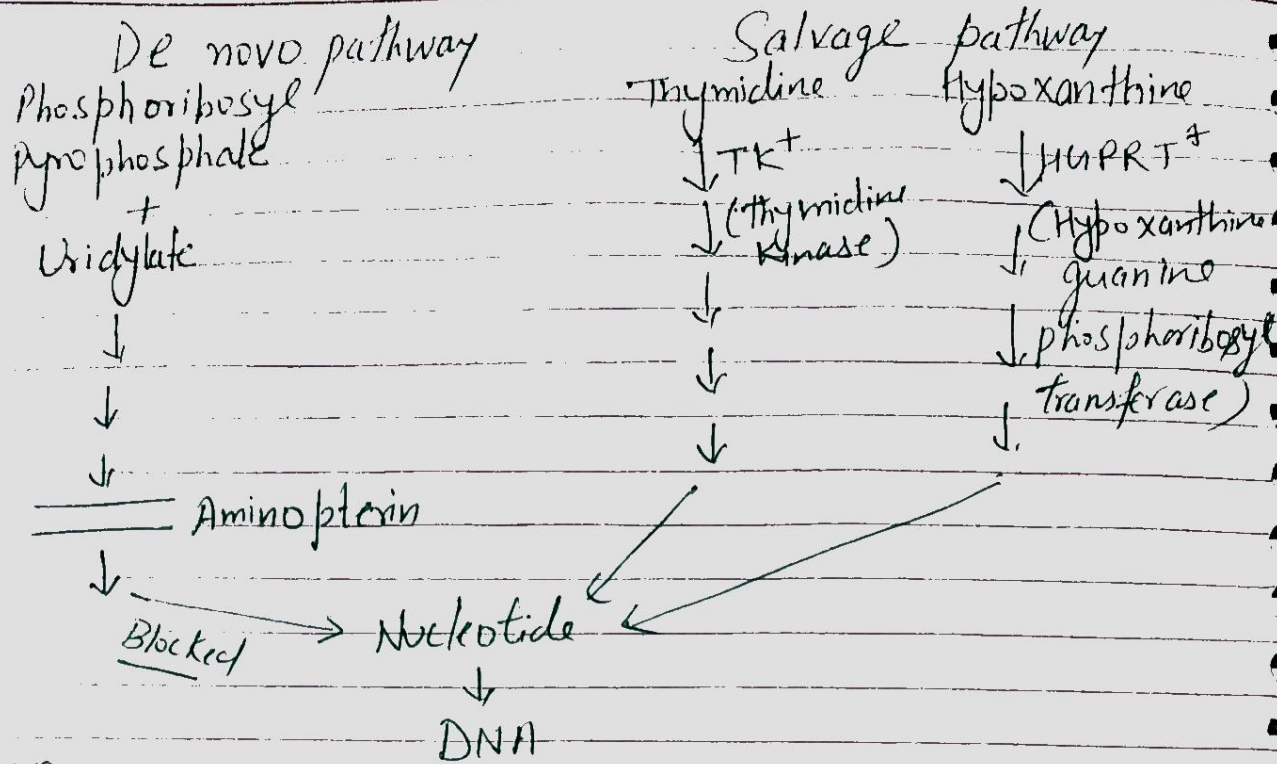 De novo pathway
Phosphoribosyl
pyrophosphate
+
Uridylate
Aminopterin
Blocked
Salvage pathway
Thymidine
TK+
(Thymidine
kinase)
Hypoxanthine
HGPRT+
(Hypoxanthine
guanine
phosphoribosyl
transferase)
Nucleotide
DNA